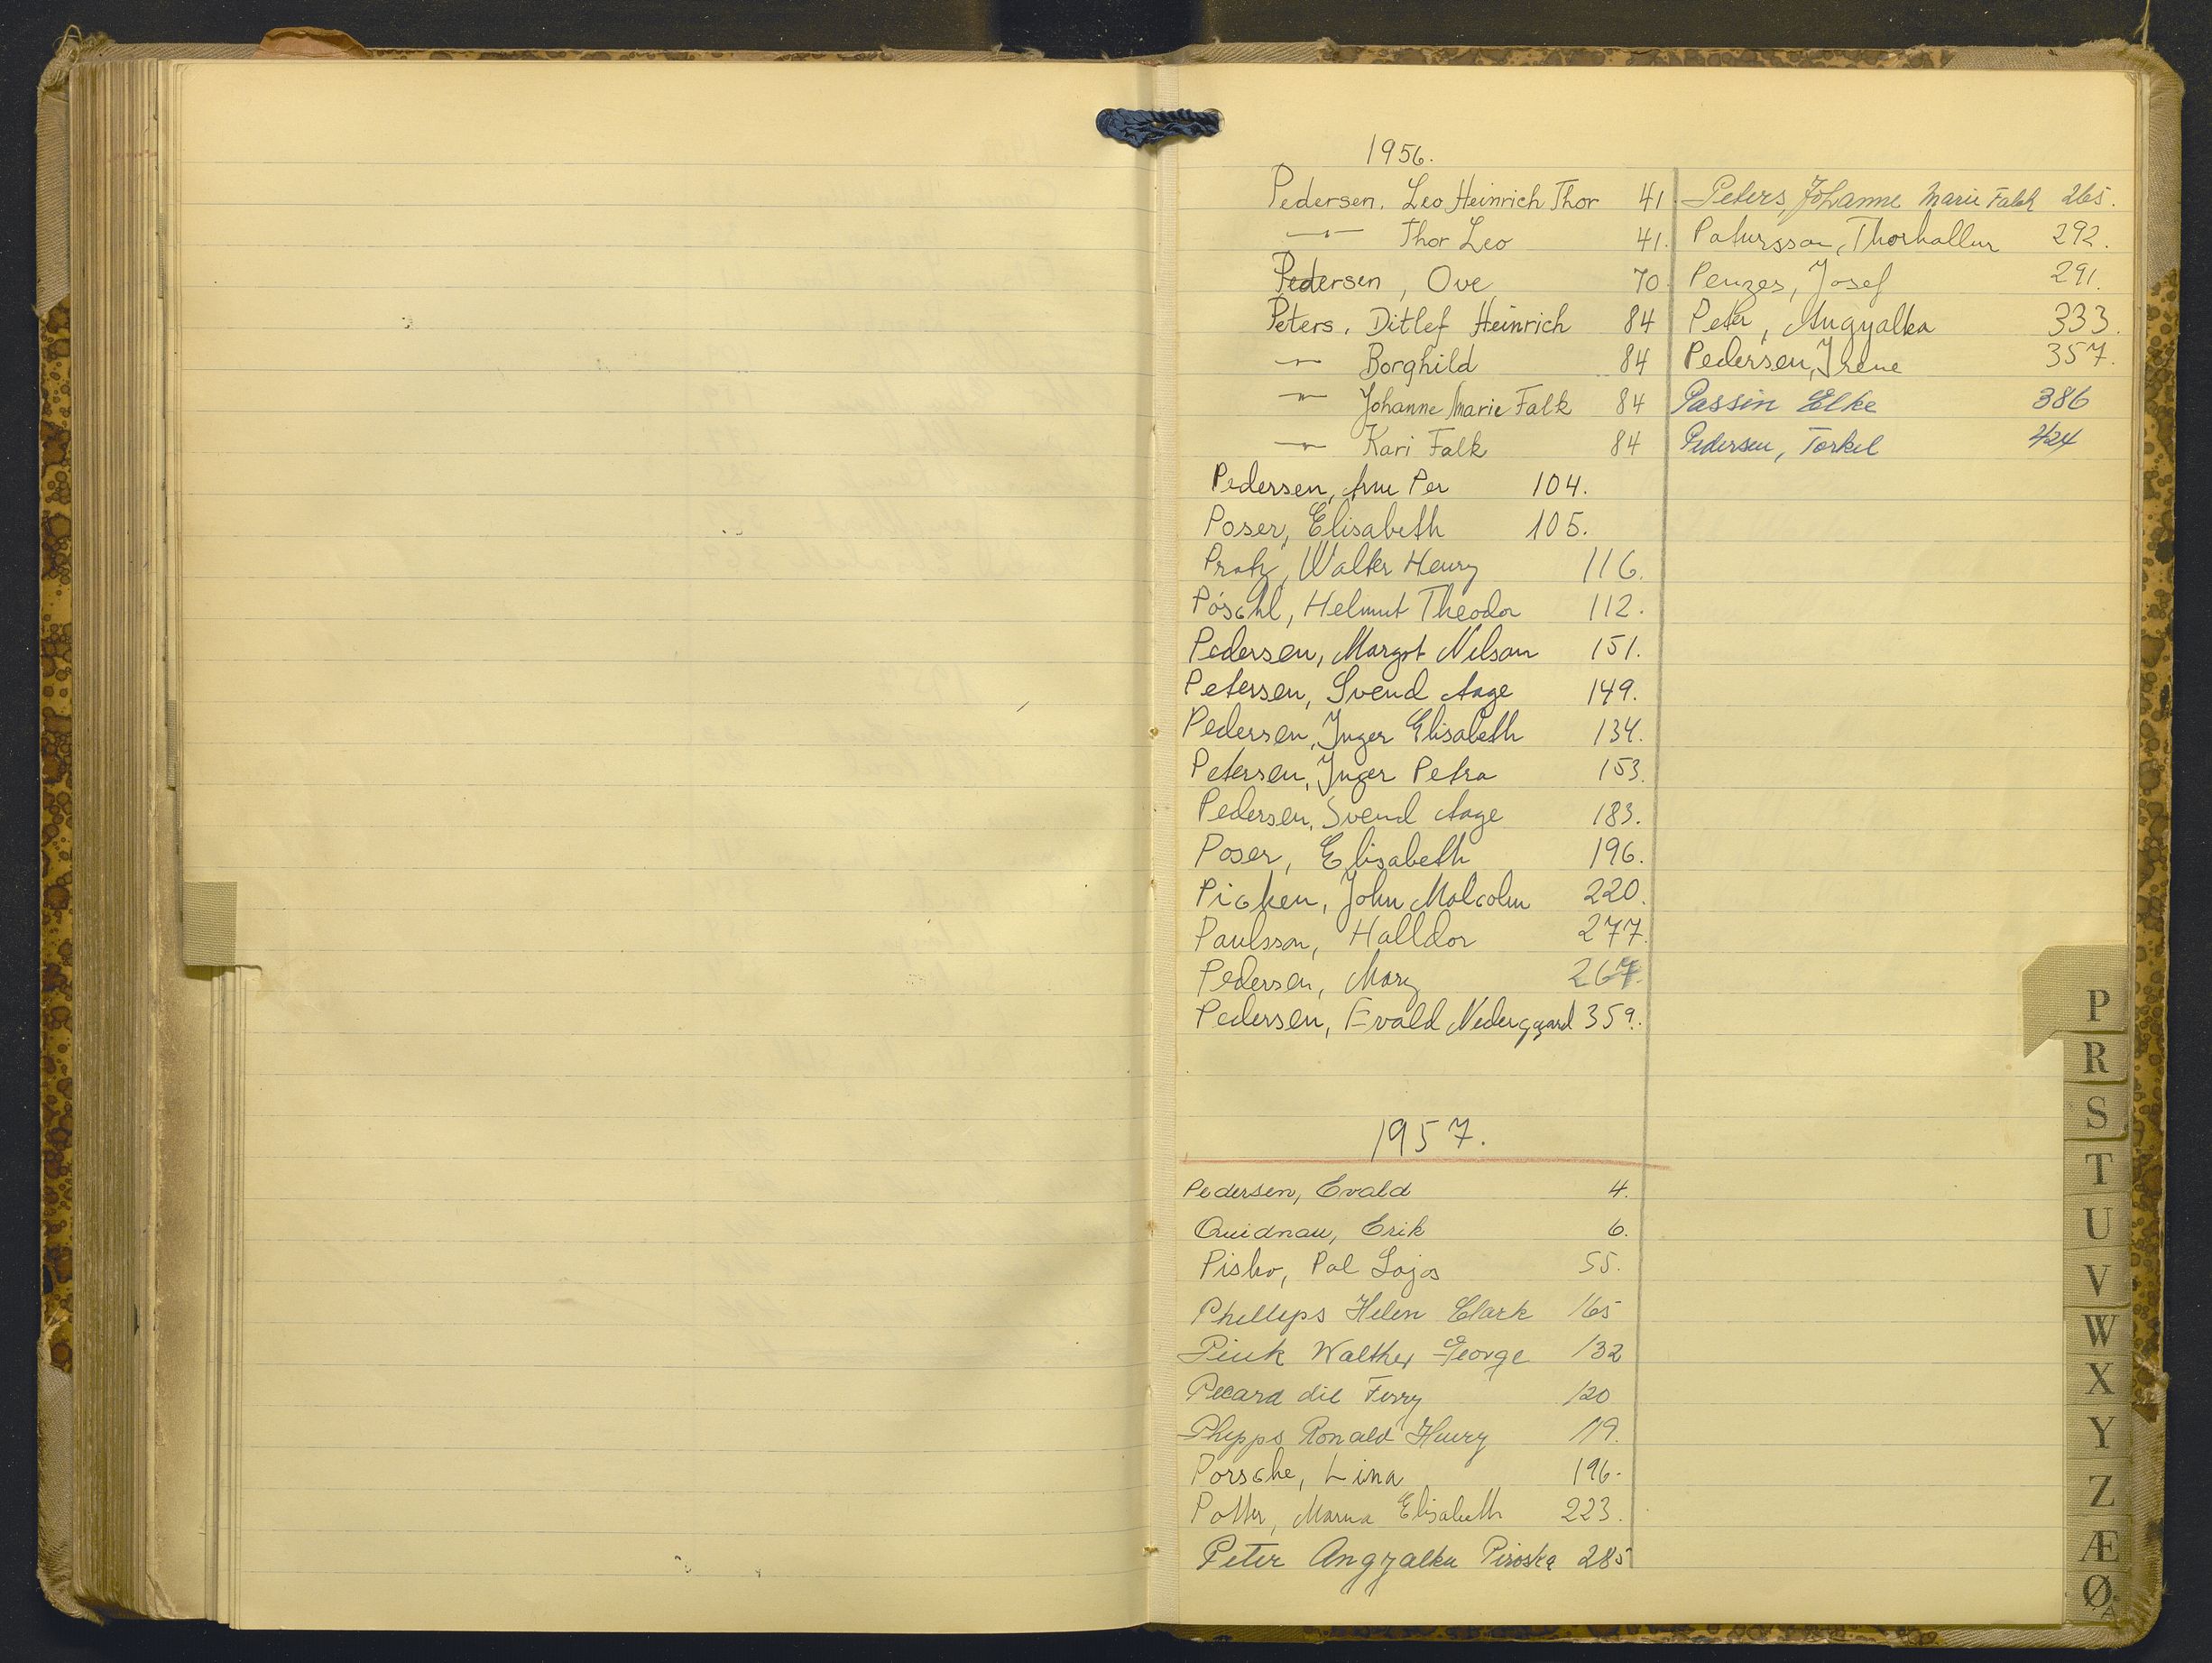 1956.
Pedersen, Leo Heinrich Thor 41
—"— Thor Leo 41.
Pedersen, Ove 70
Peters, Ditlef Heinrich 84
—"— Borghild 84
—"— Johanne Marie Falk 84
—"— Kari Falk 84
Pedersen, Arne Per 104.
Poser, Elisabeth 105.
Pratz, Walter Henry 116.
Pöschl, Helmut Theodor 112.
Pedersen, Margot Nilsson 151.
Petersen, Svend Aage 149.
Pedersen, Inger Elisabeth 134.
Petersen, Inger Petra 153.
Pedersen, Svend Aage 183.
Poser, Elisabeth 196.
Picken, John Malcolm 220.
Paulsson, Halldor 277.
Pedersen, Mary 267.
Pedersen, Evald Nedergaard 359.
Peters, Johanne Marie Falck 265.
Patursson, Thorhallur 292.
Penzes, Josef 291.
Peter, Angyalka 333.
Pedersen, Irene 357.
Passin Elke 386
Pedersen, Torkel 424
1957.
Pedersen, Evald 4.
Quidnau, Erik 6.
Pisko, Pal Lajos 55.
Phillips Helen Clark 165
Pink Walther George 132
Ferry 120
Phipps Ronald Henry 119.
Porsche, Lina 196.
Potter, Marna Elisabeth 223.
Peter Angyalka Piroska 285
P
R
S
T
U
V
W
X
Y
Z
Æ
Ø
Å